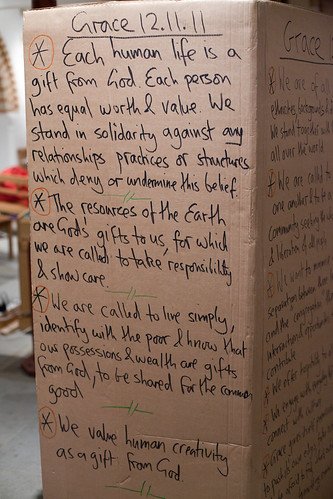 Grace 12.11.11
* Each human life is a
gift from God. Each person
has equal worth & value. We
stand in solidarity against any
relationships practices or structures
which deny or undermine this belief.
* The resources of the Earth
are God's gifts to us, for which
we are called to take responsibility
& show care.
* We are called to live simply,
identify with the poor & know that
our possessions & wealth are gifts
from God, to be shared for the common
good
* We value human creativity
as a gift from God.
Grace
* We are of all
ethnicities, backgrounds
We stand together
all over the world
* We are called to
one another & to
community seeking
& liberation of all
* We want to
separation between
and the congregation
contribute
* We offer hospitality
* We engage with
connect with culture